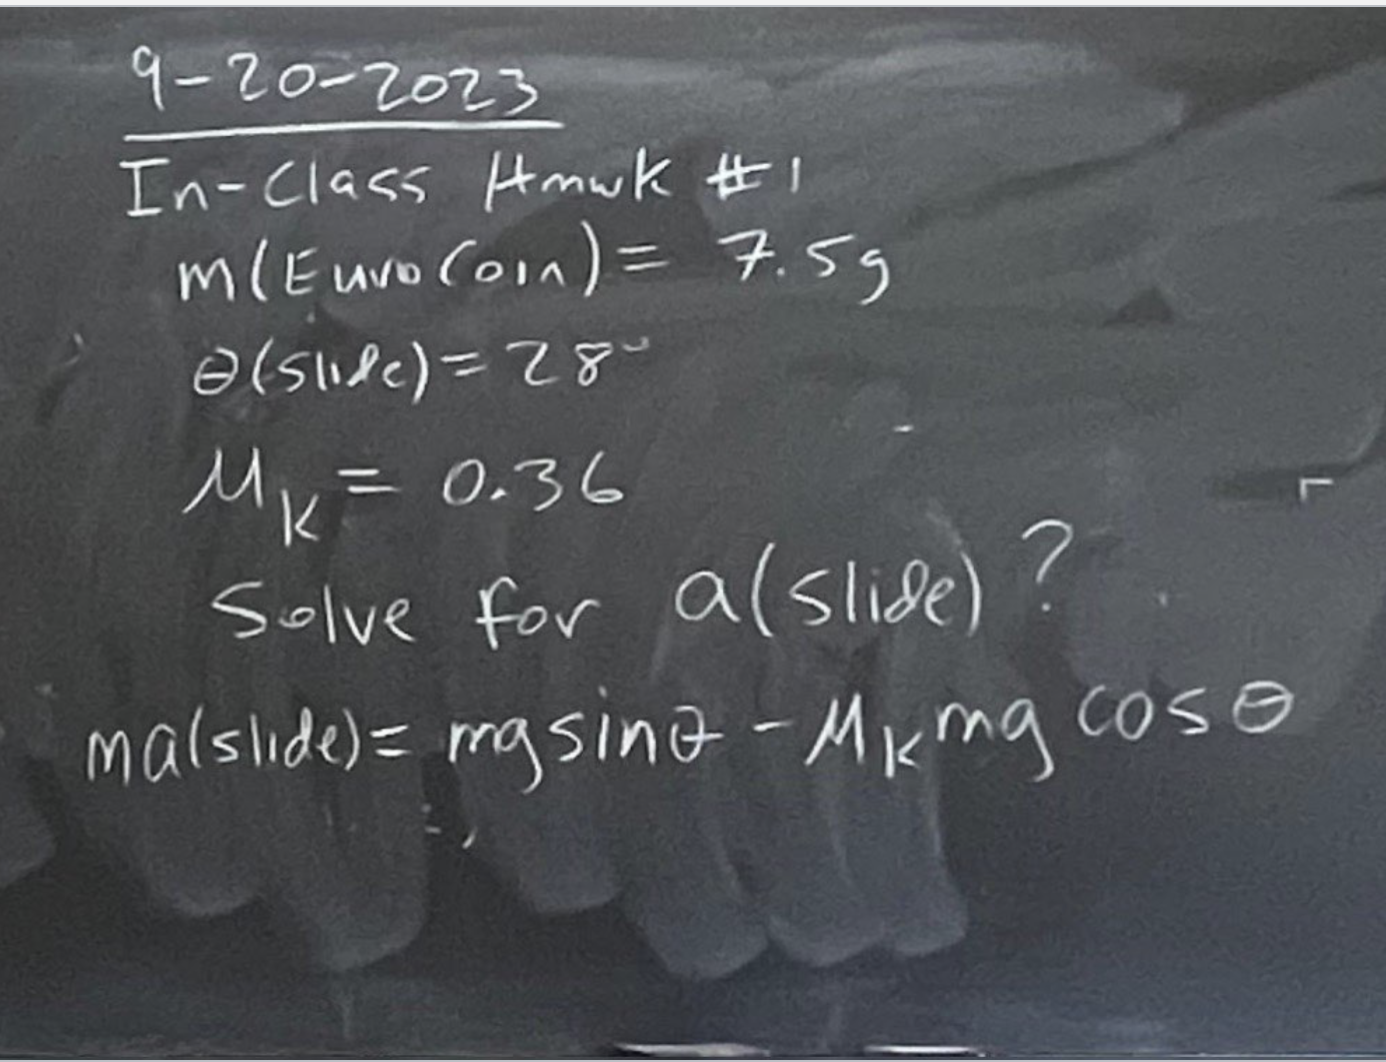 9-20-2023
In-Class Hmwk #1
m(Euro Coin) = 7.5g
θ(slide) = 28°
μ_K = 0.36
Solve for a(slide)?
ma(slide) = mg sinθ - μ_K mg cos θ